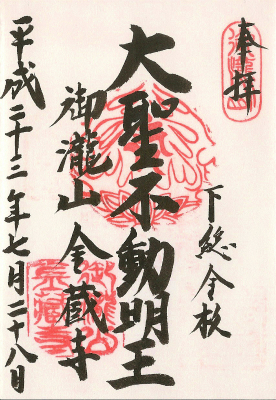 奉拝
下総金杉
大聖不動明王
御瀧山 金蔵寺
平成二十三年七月二十八日